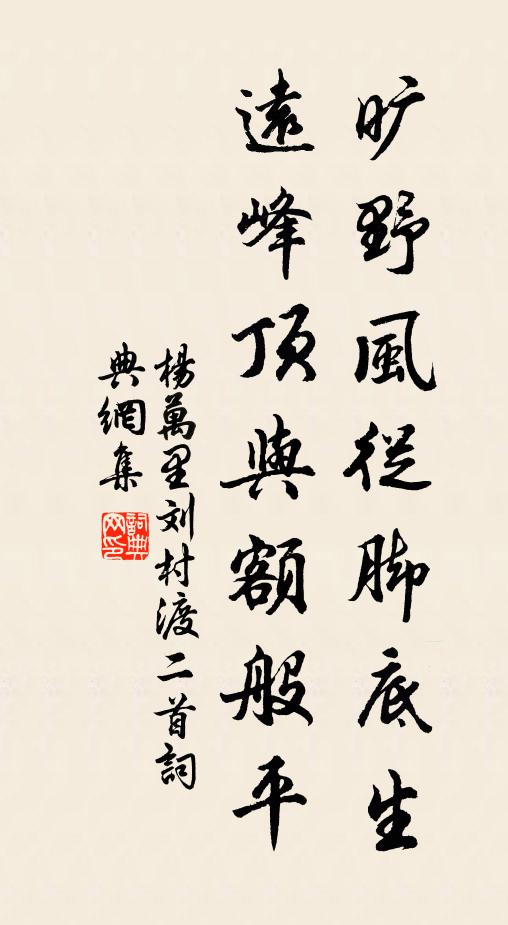 旷野風從脚底生
遠峰頂與額般平
楊萬里刘村渡二首詞
典網集
詞典网印